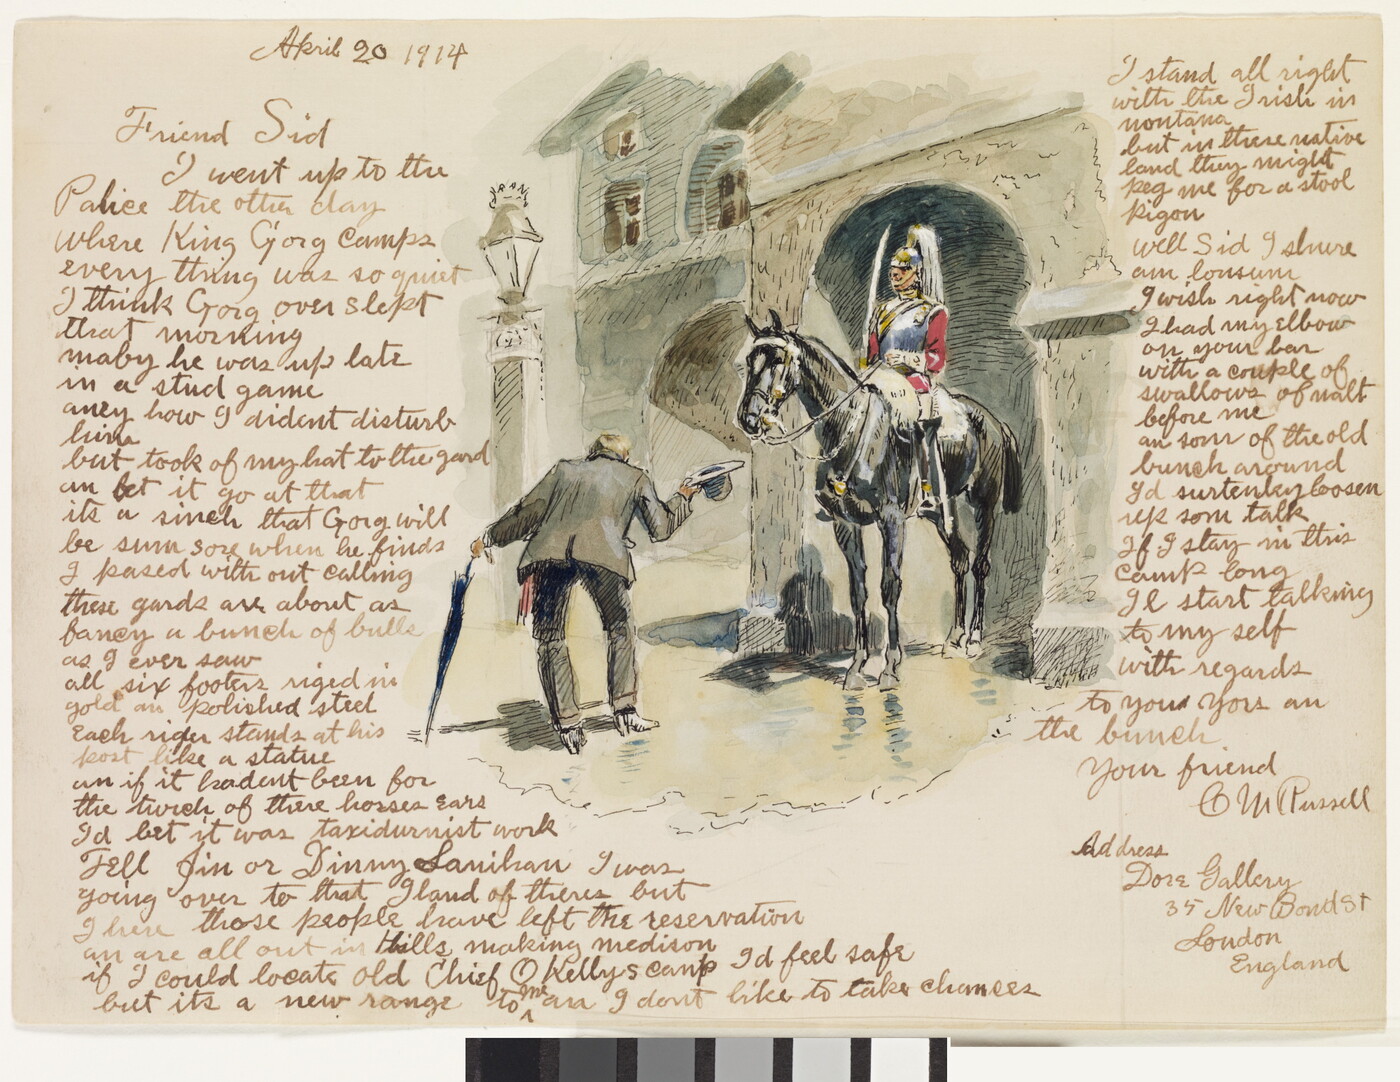 April 20 1914
Friend Sid
I went up to the
Palice the other day
where King Gorg camps
every thing was so quiet
I think Gorg over slept
that morning
maby he was up late
in a stud game
aney how I dident disturb
him
but took of my hat to the gard
an let it go at that
its a sinch that Gorg will
be sum sore when he finds
I pased with out calling
these gards are about as
fancy a bunch of bulls
as I ever saw
all six footers riged in
gold an polished steel
Each rider stands at his
post like a statue
an if it hadent been for
the twich of there horses ears
I'd bet it was taxidurmist work
Tell Jin or Dinny Lanihan I was
going over to that Iland of theres but
I here those people have left the reservation
an are all out in Hills making medison
if I could locate old Chief O Kellys camp I'd feel safe
but its a new range to me an I dont like to take chances
I stand all right
with the Irish in
montana
but in there native
land they might
peg me for a stool
pigon
well Sid I shure
am lonsum
I wish right now
I had my elbow
on your bar
with a couple of
swallows of malt
before me
an som of the old
bunch around
I'd surtenly loosen
up som talk
If I stay in this
camp long
Il start talking
to my self
with regards
to you Yors an
the bunch
Your friend
C M Russell
Address
Dore Gallery
35 New Bond St
London
England